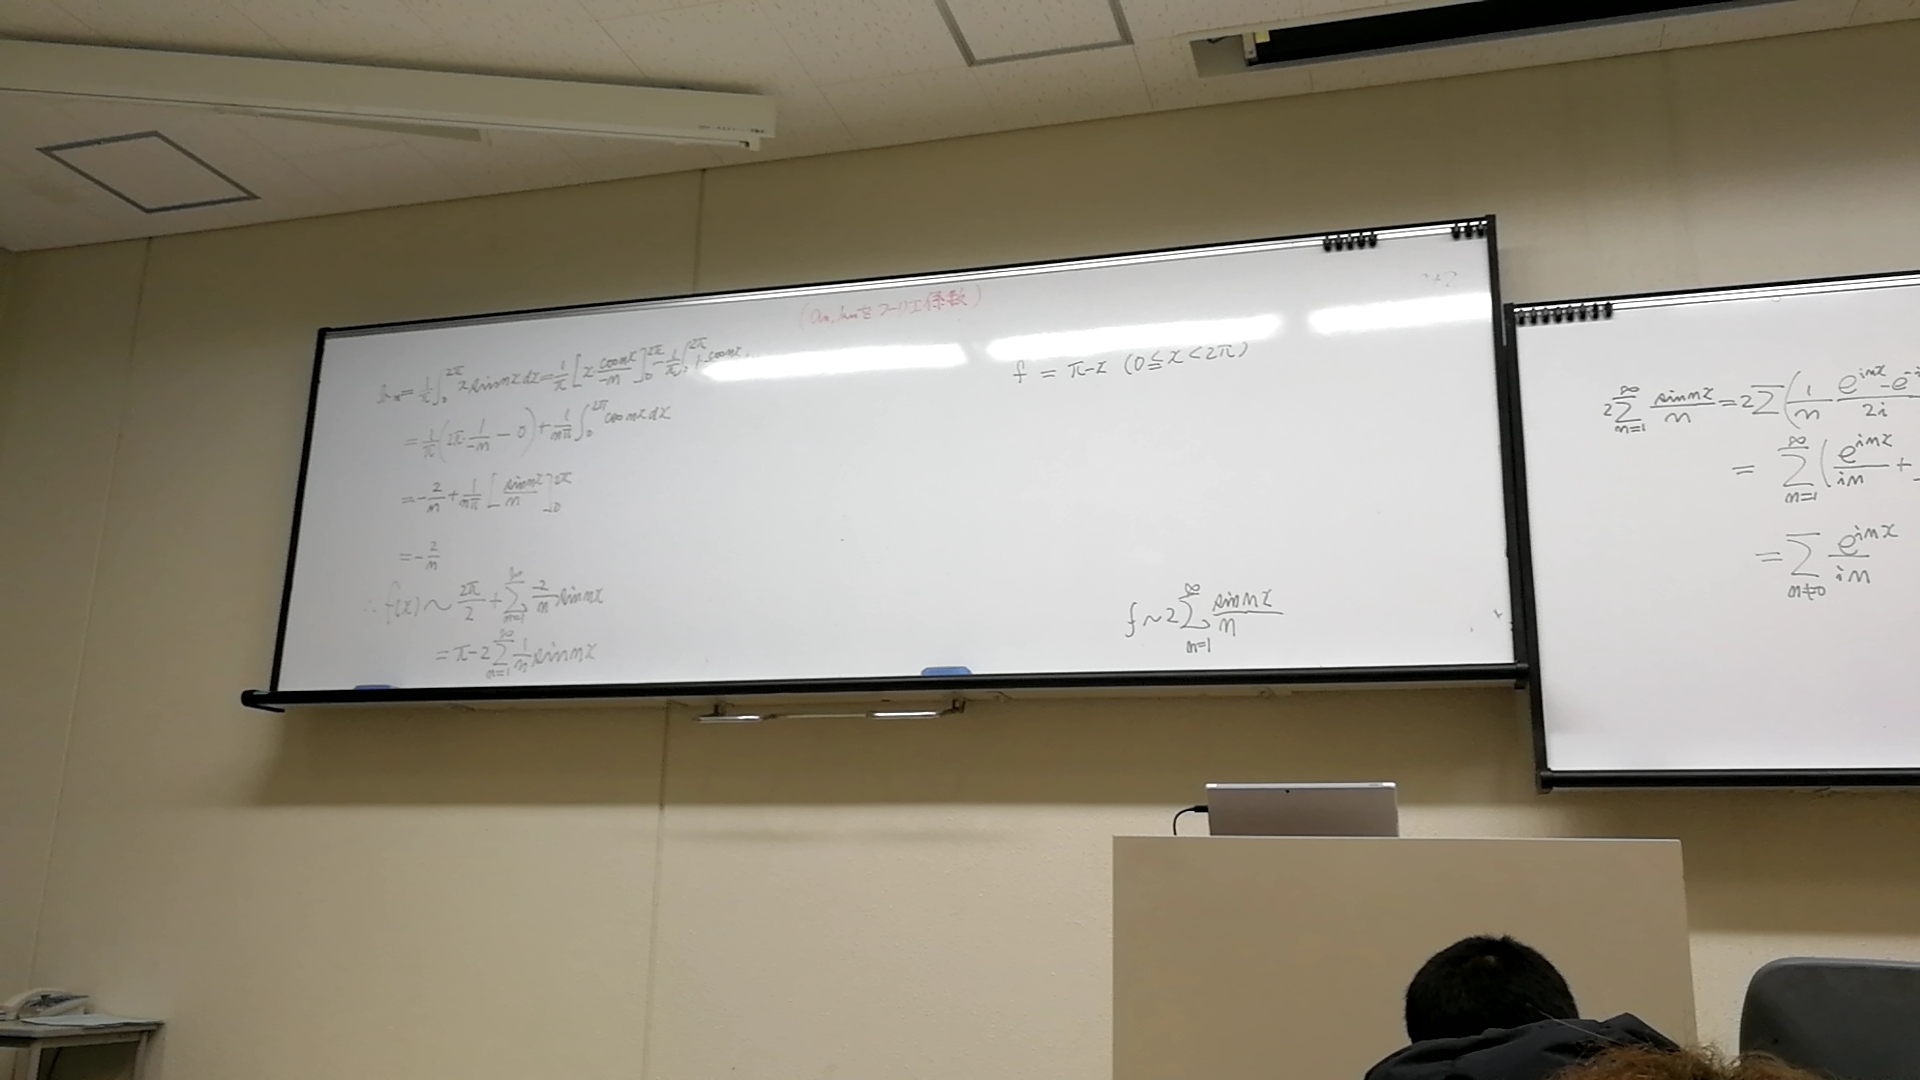 (an, bnをフーリエ係数)
bn = 1/π ∫₀^{2π} x sin nx dx = 1/π [x · cos nx/-n]₀^{2π} - 1/π ∫₀^{2π} 1 · cos nx
= 1/π (2π · 1/-n - 0) + 1/nπ ∫₀^{2π} cos nx dx
= -2/n + 1/nπ [sin nx/n]₀^{2π}
= -2/n
∴ f(x) ~ 2π/2 + Σ_{n=1}^{∞} -2/n sin nx
= π - 2 Σ_{n=1}^{∞} 1/n sin nx
f = π-x (0 ≦ x < 2π)
f ~ 2 Σ_{n=1}^{∞} sin nx/n
2 Σ_{n=1}^{∞} sin nx/n = 2 Σ (1/n e^{inx} - e^{-i}/2i
= Σ_{n=1}^{∞} (e^{inx}/in +
= Σ_{n≠0} e^{inx}/in